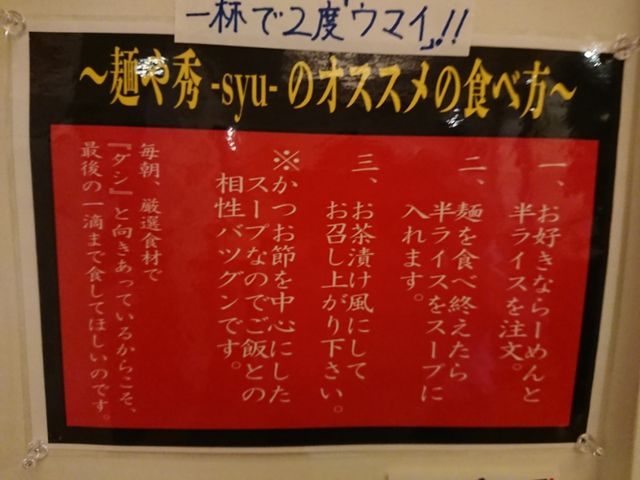 一杯で2度「ウマイ」。!!
〜麺や秀 -syu- のオススメの食べ方〜
一、お好きならーめんと
半ライスを注文。
二、麺を食べ終えたら
半ライスをスープに
入れます。
三、お茶漬け風にして
お召し上がり下さい。
※かつお節を中心にした
スープなのでご飯との
相性バツグンです。
毎朝、厳選食材で
『ダシ』と向きあっているからこそ、
最後の一滴まで食してほしいのです。